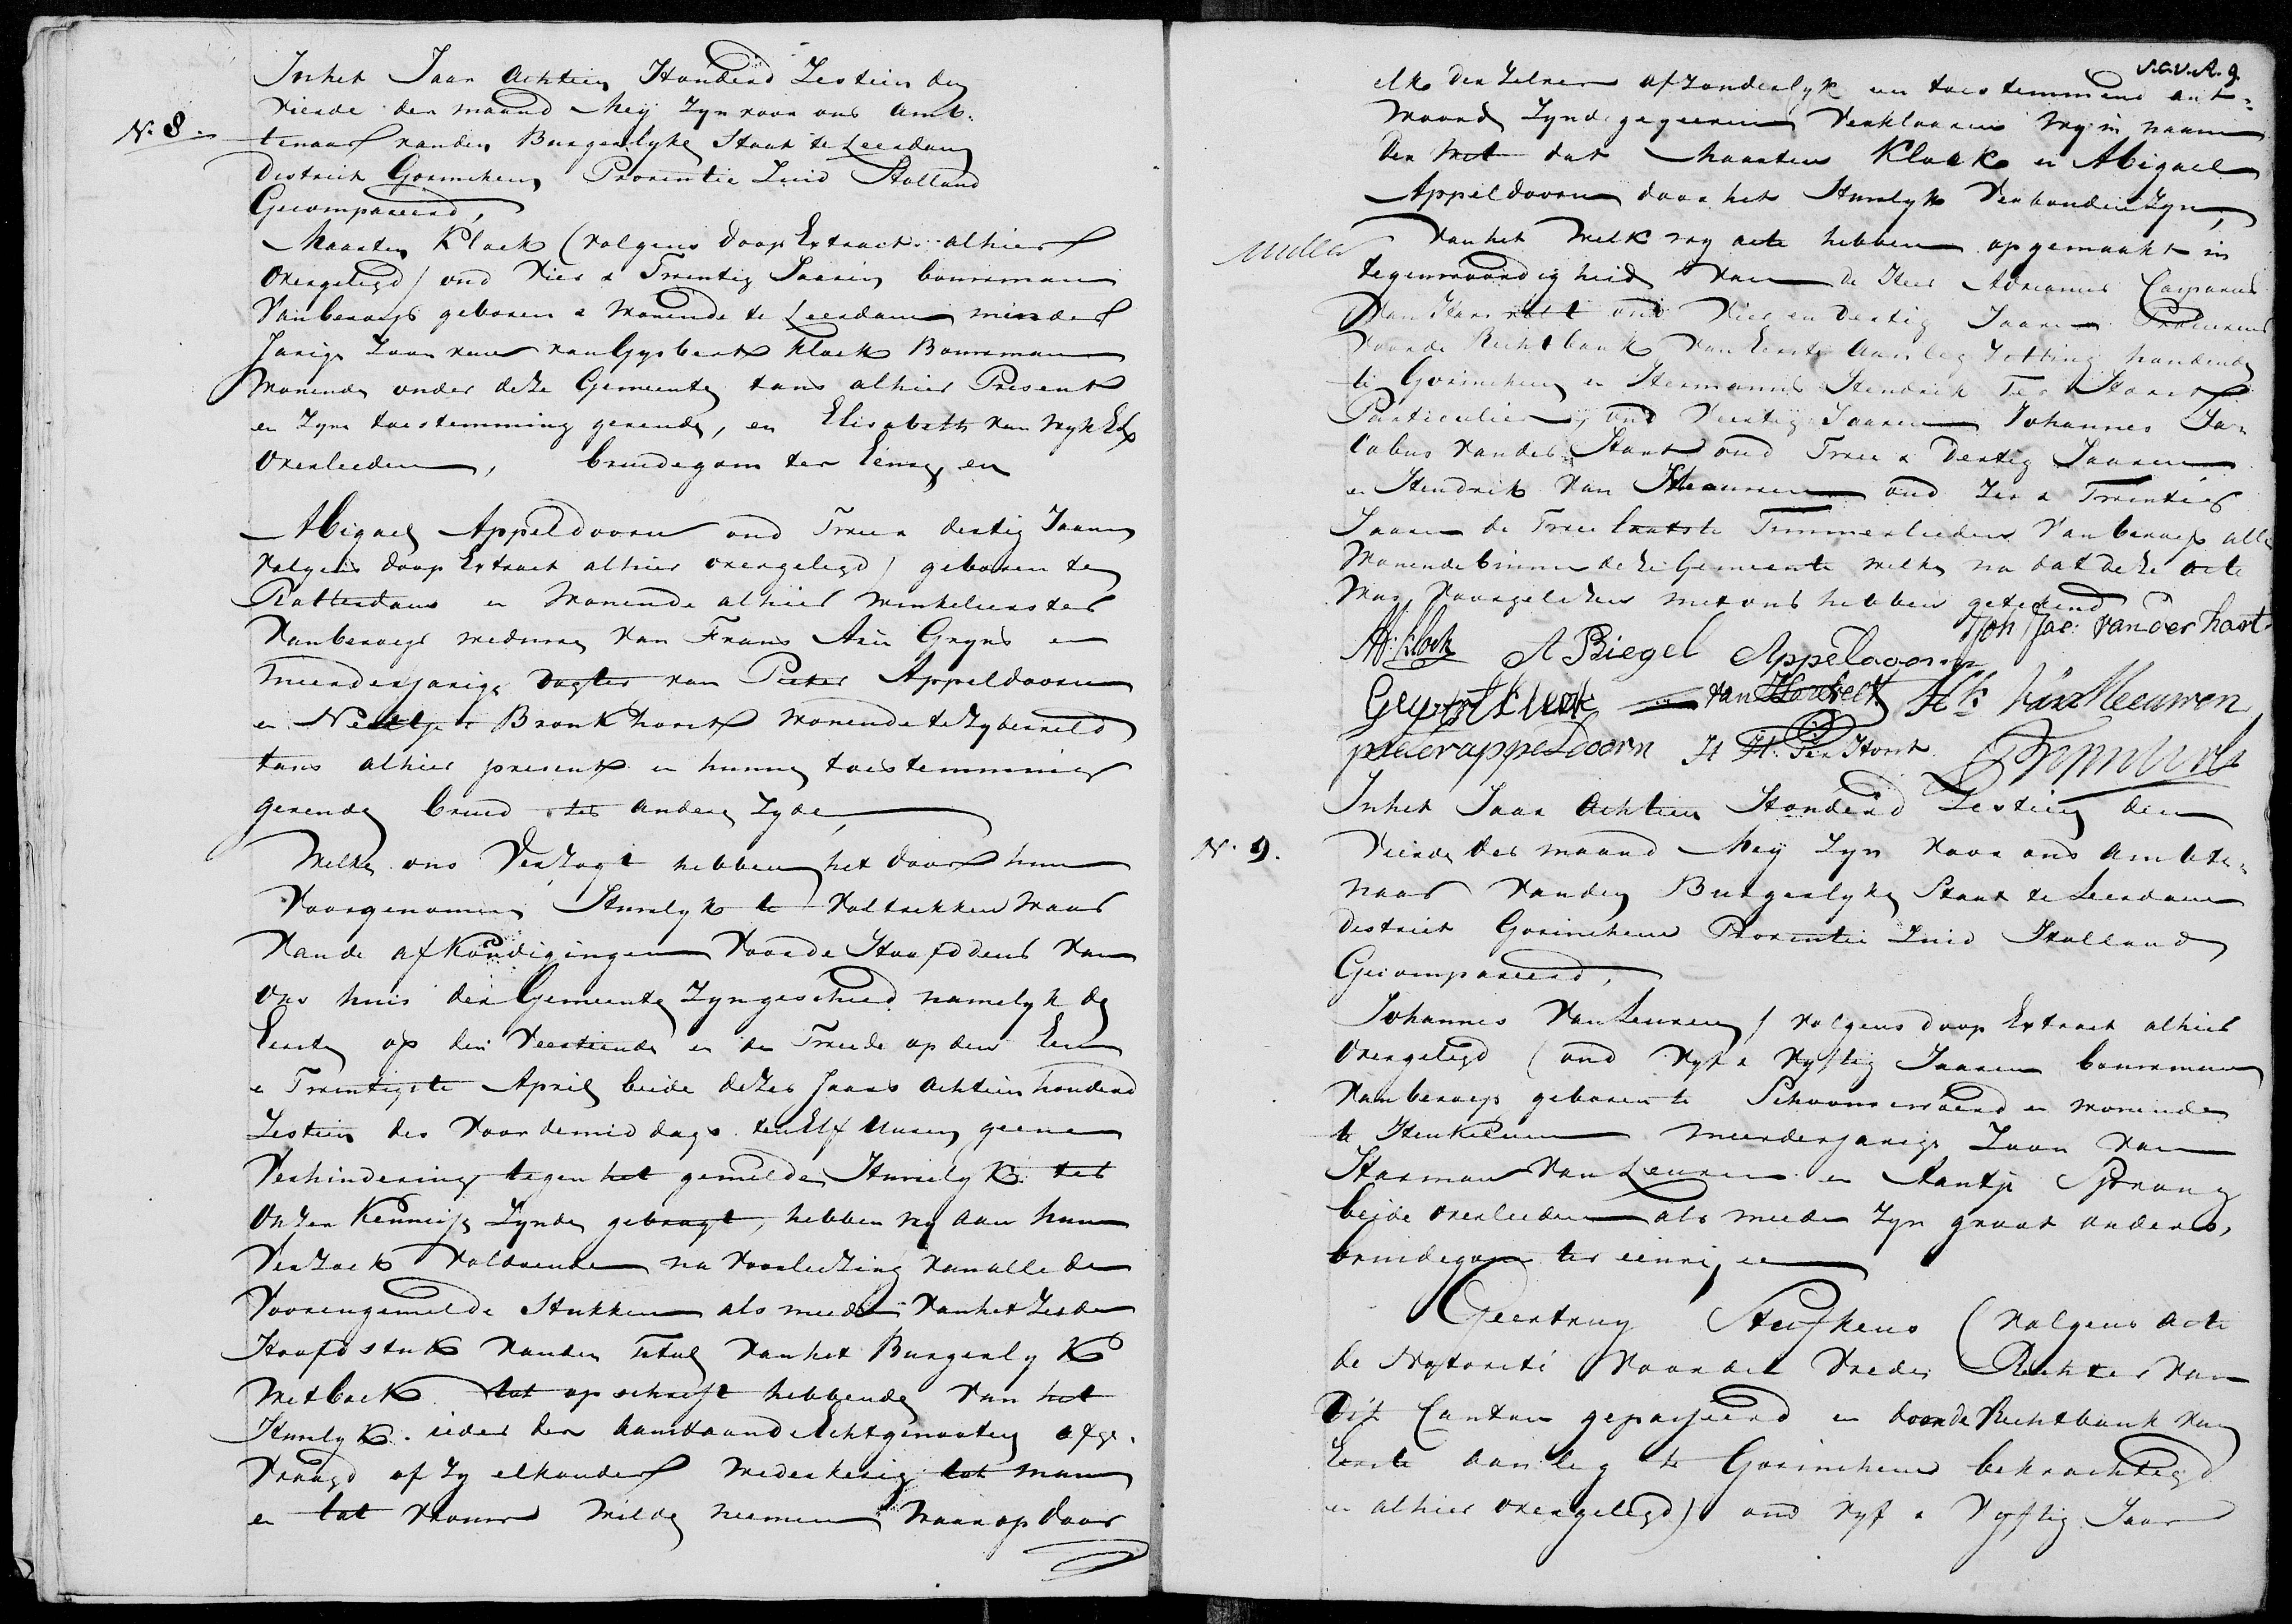 N. 8.
Inhet Jaar Achtien Honderd Zestien den
vierde der maand Meij Zyn voor ons Amb-
tenaar vanden Burgerlyke Staat te Leerdam
District Gorinchem Provintie Zuid Holland
Gecompareerd,
Maarten Klock (volgens doop Extract alhier
overgelegd) oud vier & Twintig Jaaren bouwman
van beroep geboren & Wonende te Leerdam minder
Jarige Zoon van van Gysbert Klock Bouwman
wonende onder deze Gemeente tans alhier Present
en Zyne toestemming gevende, en Elisabeth van Wyk
overleeden, bruidegom ter Eenre, en
Abigael Appeldoorn oud Twee & dertig Jaaren
volgens doop Extract alhier overgelegd) geboren te
Rotterdam en Wonende alhier winkelierster
van beroep weduwe van Frans Arie Gryns en
meerderjarige dogter van Pieter Appeldoorn
en Neeltje Bronkhorst Wonende te Zyderveld
tans alhier present en hunne toestemming
gevende bruid ter andere Zyde,
Welke ons Verzogt hebben het door hun
Voorgenomen Huwlyk te Voltrekken Waar
Vande afkondigingen Voorde Hoofddeur van
ons huis der Gemeente Zyn geschied namelyk de
Eerste op den Veertiende en de Tweede op den Een
& Twintigste April beide dezes Jaars achtien honderd
Zestien des Voordemiddags ten Elf Uuren geene
Verhindering tegen het gemelde Huwelyk ter
Onzer Kennisse Zynde gebragt, hebben wy aan hun
Verzoek Voldoende na Voorlezing van alle de
Voorengemelde Stukken als meede Vanhet Zesde
Hoofdstuk vanden Tetul Vanhet Burgerlyk
Wetboek tot opschrift hebbende Van het
Huwlyk ieder der aanstaande Echtgenooten afge-
Vraagd of Zy elkander wederkerig tot man
en tot Vrouw Wilde neemen Waarop door
S.C.V.A. 9.
elk derzelver afzonderlyk een toestemmend ant-
woord Zynde gegeven Verklaaren wy in naam
der Wet dat Maarten Klock en Abigael
Appeldoorn door het Huwlyk Verbonden Zyn,
Van het Welk wy acte hebben opgemaakt in
tegenwoordigheid van de Heer Adrianus Casparus
van Hardvelt oud Vier en dertig Jaaren Procureur
Voorde Rechtbank van Eerste Aanleg Zitting houdende
te Gorinchem en Hermanus Hendrik Ter Horst
Particulier, oud Veertig Jaaren Johannes Ja-
cobus van der Hart oud Twee & Dertig Jaaren
en Hendrik van Meeuwen oud Zes & Twintig
Jaaren de Twee laatste Timmerlieden Van beroep alle
Wonende binnen deze Gemeente welke na dat deze acte
Was Voorgelezen met ons hebben getekend
M: Klock A Biegel Appeldoorn Joh Jac: van der hart
Gysbert Klock van Hardvelt Hk: van Meeuwen
pieter appeldoorn H H. Ter Horst
N. 9.
Inhet Jaar Achtien Honderd Zestien den
Vierde der maand Meij Zyn voor ons Ambte-
naar Vanden Burgerlyke Staat te Leerdam
District Gorinchem Provintie Zuid Holland
Gecompareerd,
Johannes Van Leuven / volgens doop Extract alhier
overgelegd ( oud Vyf & Vyftig Jaaren bouwman
Van beroep geboren te Schoonrewoerd en wonende
te Heukelum meerderjarige Zoon van
Harman Van Leuven en Aantje Sprong
beide overleeden als meede Zyn groot ouders,
bruidegom ter eenre, en
Geertruy (volgens Acte
de Notorité Voordet Vrede Rechter van
dit Canton gepasseerd en doorde Rechtbank van
Eerste aanleg te Gorinchem bekrachtigd
en alhier overgelegd) oud Vyf & Vyftig Jaar